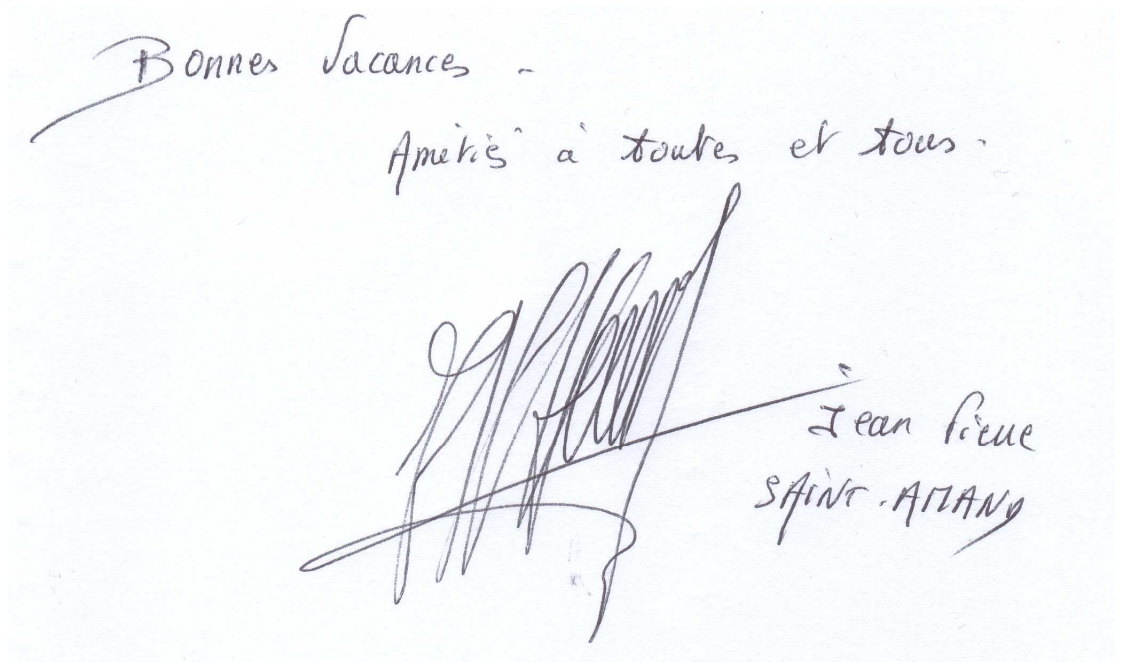 Bonnes Vacances -
Amitiés à toutes et tous.
Jean Pierre
SAINT-AMAND